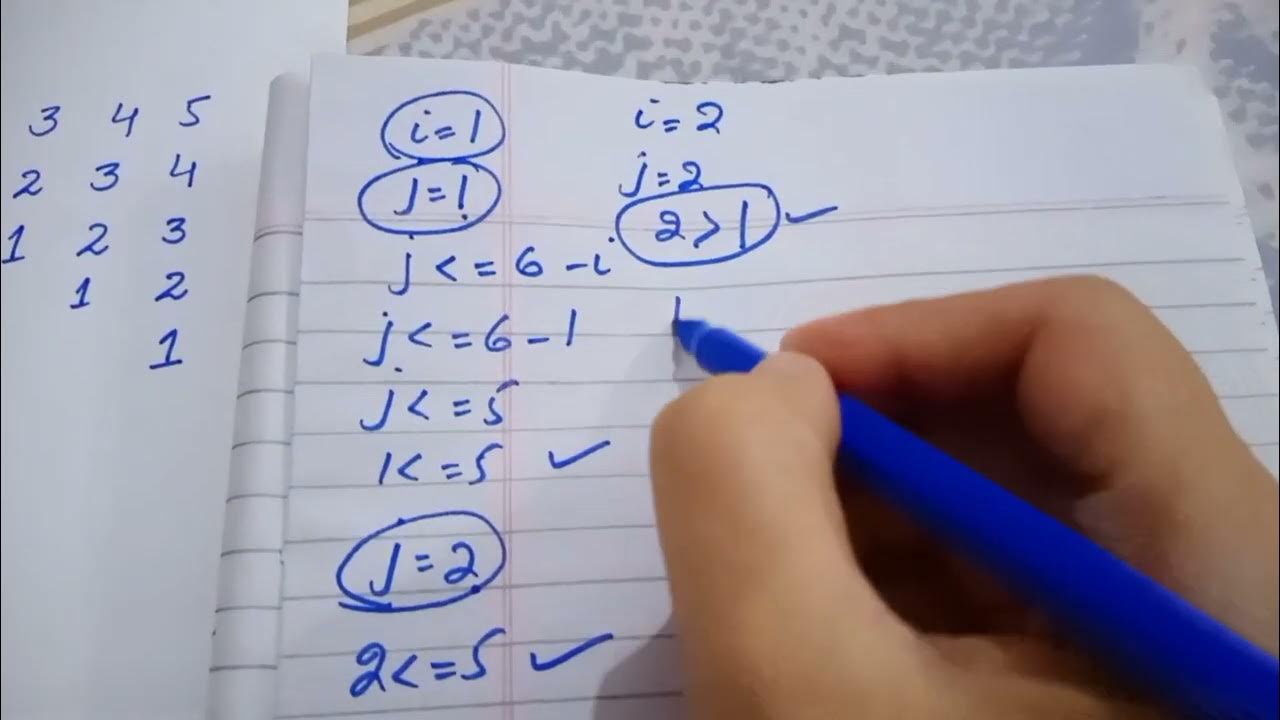 3 4 5
2 3 4
1 2 3
1 2
1
i=1
j=1
j<=6-i
j<=6-1
j<=5
1<=5 ✓
j=2
2<=5 ✓
i=2
j=2
2>1 ✓